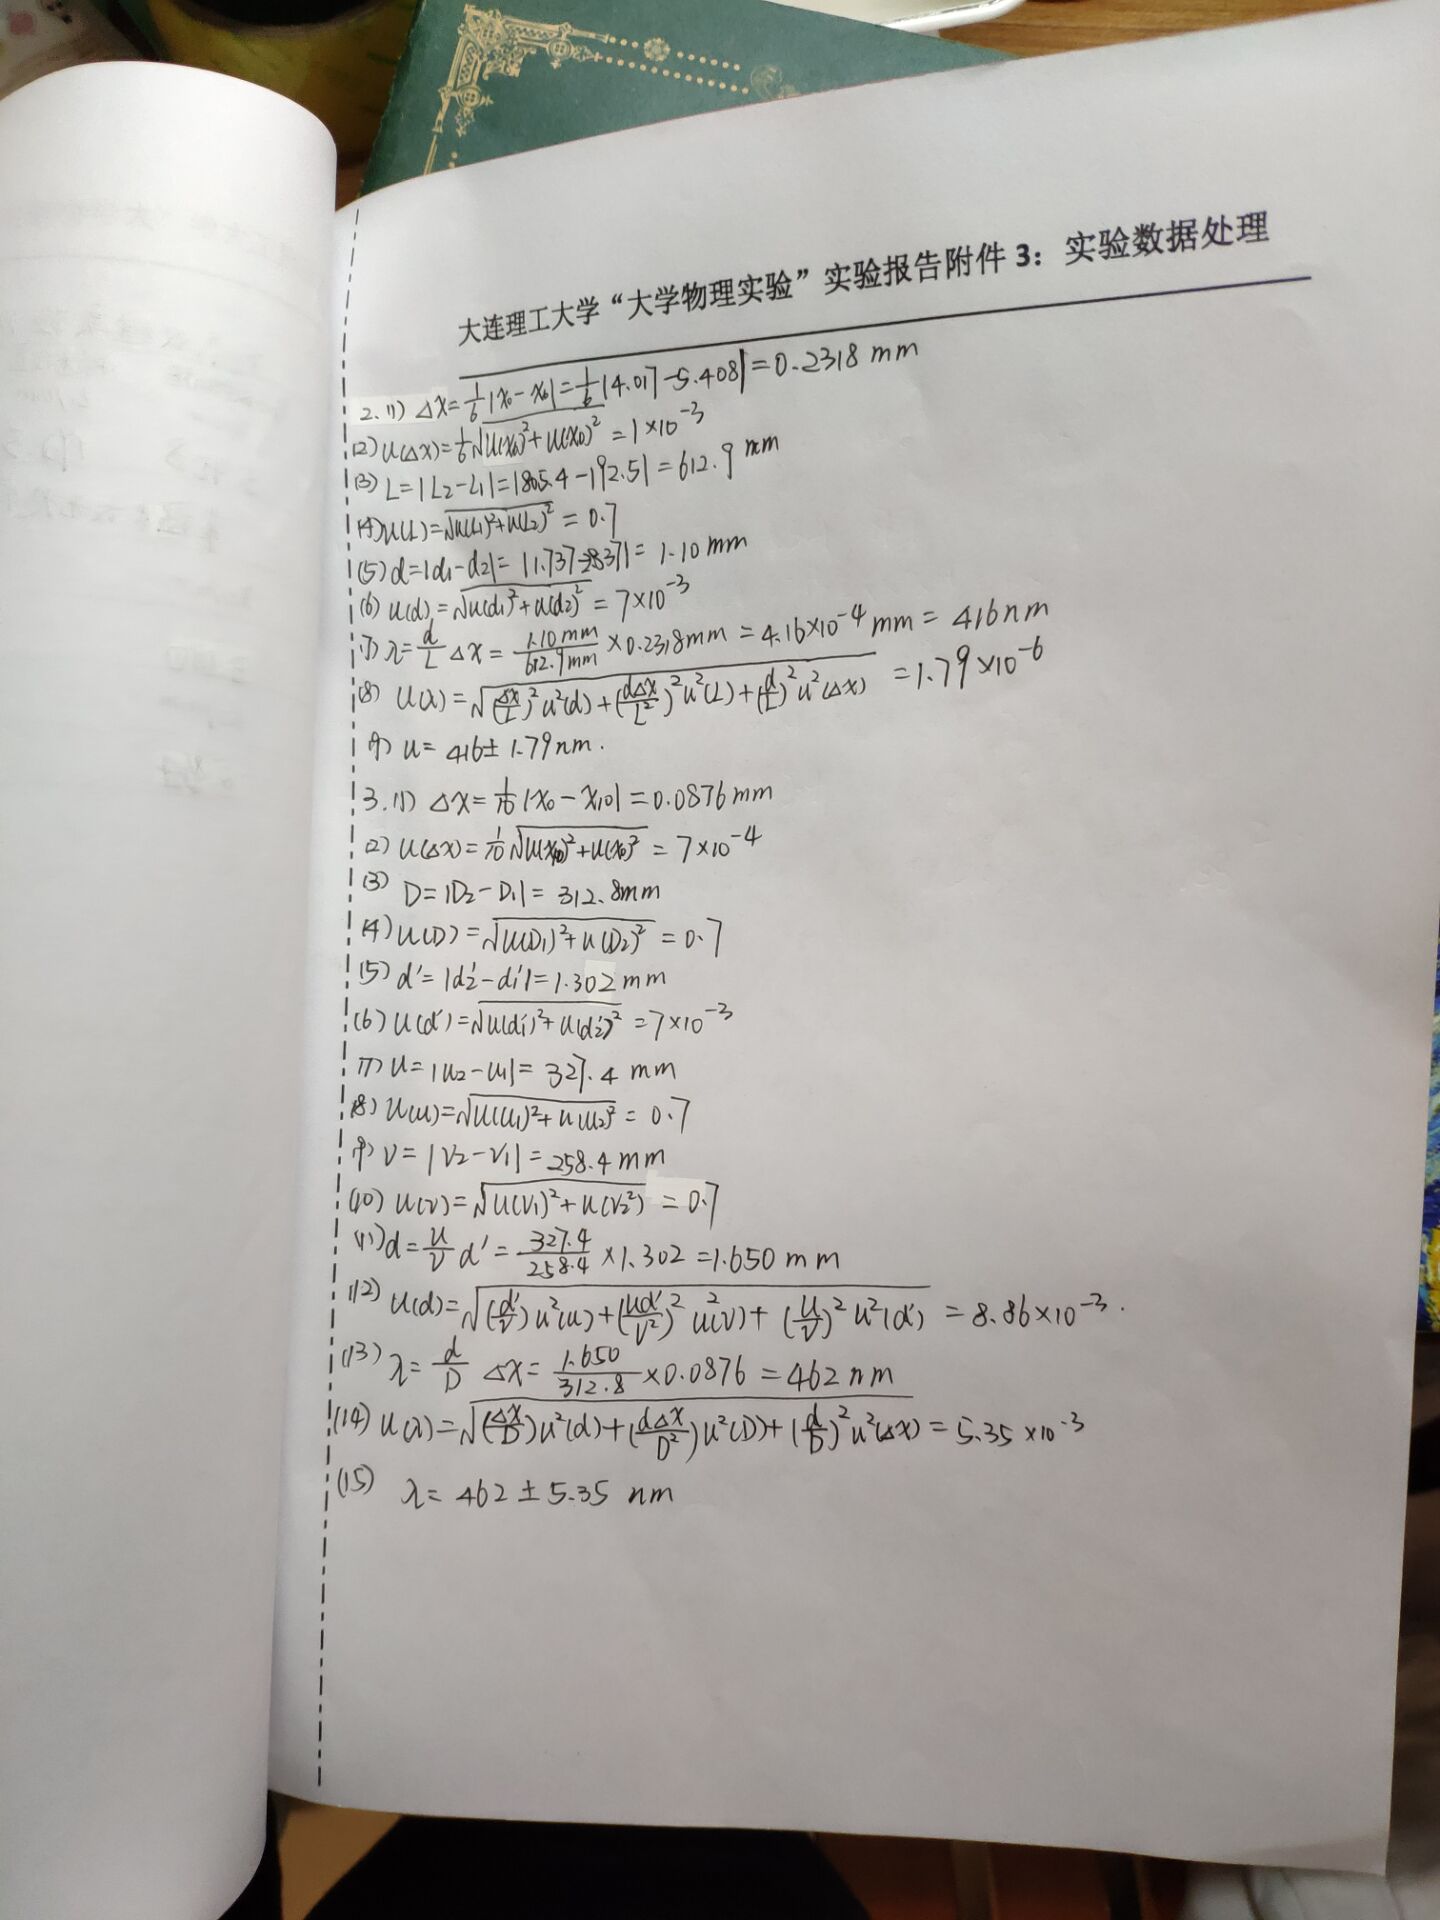 大连理工大学“大学物理实验”实验报告附件 3：实验数据处理
2.(1) Δx=1/6|x₀-x₆|=1/6|4.017-5.408|=0.2318 mm
(2) u(Δx)=1/6√(u(x₆)²+u(x₀)²)=1×10⁻³
(3) L=|L₂-L₁|=|805.4-192.5|=612.9 mm
(4) u(L)=√(u(L₁)²+u(L₂)²)=0.7
(5) d=|d₁-d₂|=|1.737-8371|=1.10 mm
(6) u(d)=√(u(d₁)²+u(d₂)²)=7×10⁻³
(7) λ=d/L Δx=1.10mm/612.9mm×0.2318mm=4.16×10⁻⁴mm=416nm
(8) u(λ)=√((Δx/L)²u²(d)+(dΔx/L²)²u²(L)+(d/L)²u²(Δx))=1.79×10⁻⁶
(9) u=416±1.79nm.
3.(1) Δx=1/10|x₀-x₁₀|=0.0876mm
(2) u(Δx)=1/10√(u(x₁₀)²+u(x₀)²)=7×10⁻⁴
(3) D=|D₂-D₁|=312.8mm
(4) u(D)=√(u(D₁)²+u(D₂)²)=0.7
(5) d'=|d₂'-d₁'|=1.302mm
(6) u(d')=√(u(d₁')²+u(d₂')²)=7×10⁻³
(7) u=|u₂-u₁|=327.4 mm
(8) u(u)=√(u(u₁)²+u(u₂)²)=0.7
(9) v=|v₂-v₁|=258.4mm
(10) u(v)=√(u(v₁)²+u(v₂²))=0.7
(11) d=u/v d'=327.4/258.4×1.302=1.650 mm
(12) u(d)=√((d'/v)u²(u)+(ud'/v²)²u²(v)+(u/v)²u²(d'))=8.86×10⁻³.
(13) λ=d/D Δx=1.650/312.8×0.0876=462 nm
(14) u(λ)=√((Δx/D)u²(d)+(dΔx/D²)u²(D)+(d/D)²u²(Δx))=5.35×10⁻³
(15) λ=462±5.35 nm